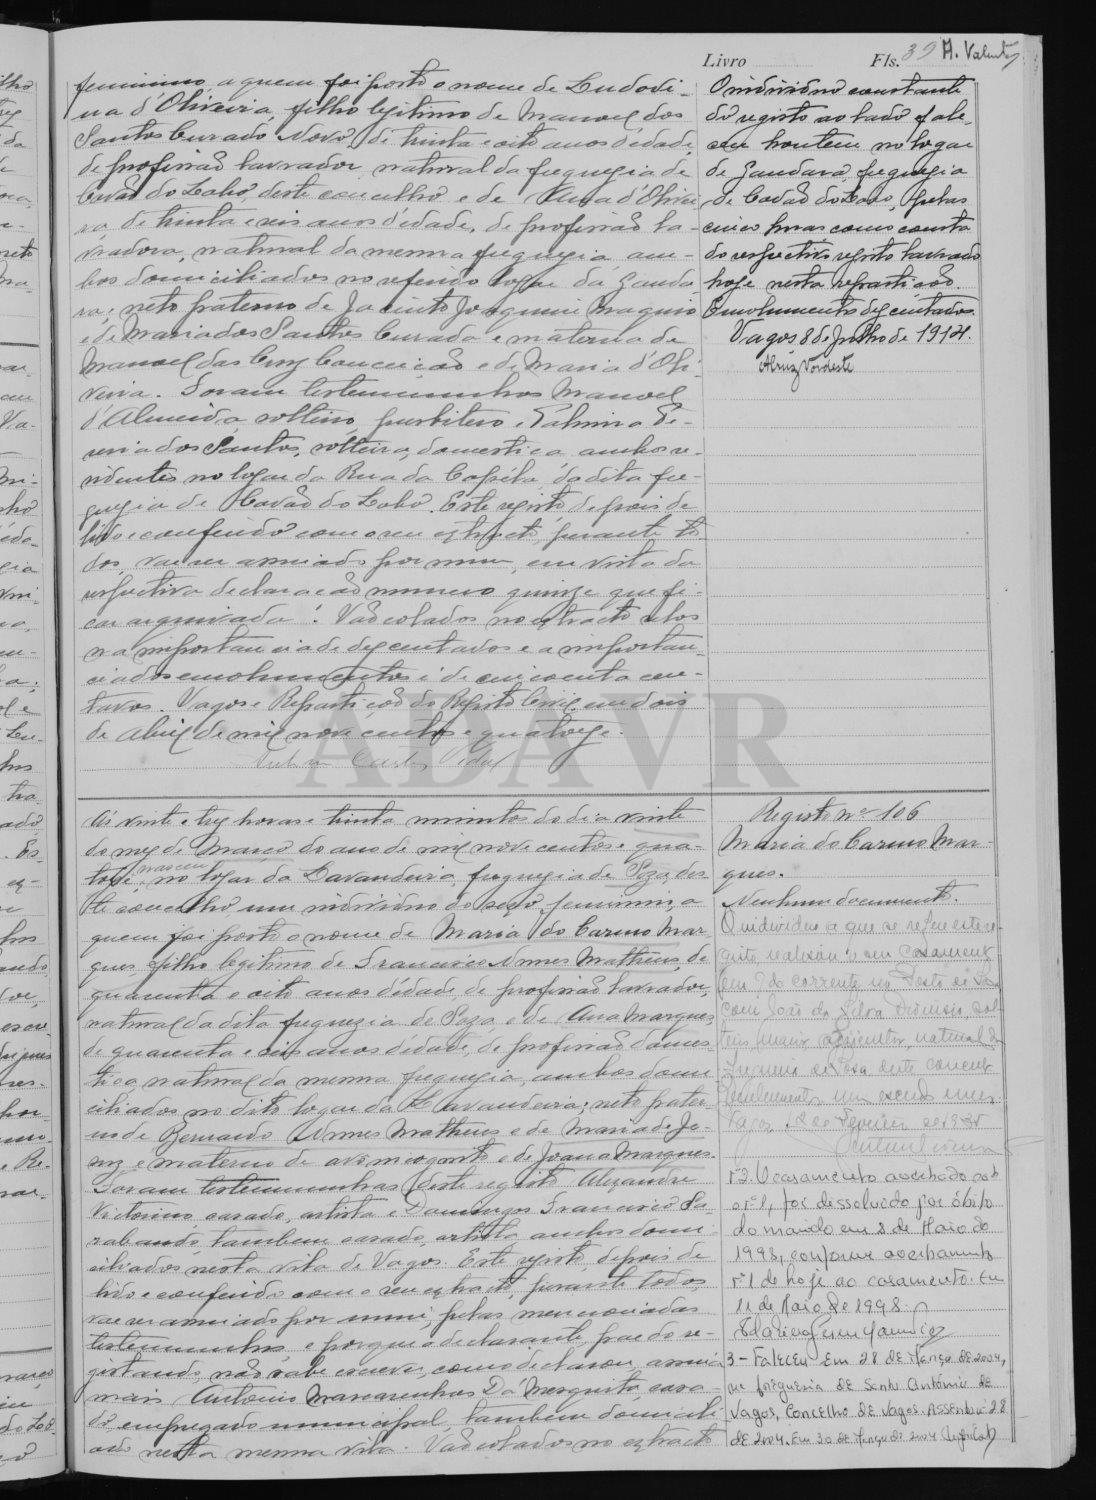 Livro Fls. 39 A. Valente
feminino, a quem foi posto o nome de Ludovi-
na d'Oliveira, filho legitimo de Manoel dos
Santos Curado Novo, de trinta e oito anos d'edade,
de profissão lavrador, natural da freguezia de
Covão do Lobo, deste concelho e de Ana d'Olivei-
ra, de trinta e seis anos d'edade, de profissão la-
vradora, natural da mesma freguezia, am-
bos domiciliados no referido logar da Ganda-
ra; neto paterno de Jacinto Joaquim
e de Maria dos Santos Curada e materno de
Manoel da Cruz Conceição e de Maria d'Oli-
veira. Foram testemunhas Manoel
d'Almeida, solteiro, presbitero e Palmira
dos Santos, solteira, domestica, ambos re-
sidentes no logar da Rua da Capéla, da dita fre-
guezia de Covão do Lobo. Este registo, depois de
lido e conferido com o seu extracto, perante to-
dos, vae ser assinado por mim, em vista da
respectiva declaração numero quinze que fi-
ca arquivada. Vão colados no extracto selos
na importancia de dez centavos e a importan-
cia dos emolumentos é de cincoenta cen-
tavos. Vagos e Repartição do Registo Civil, em dois
de Abril de mil nove centos e quatorze.
O individuo constante
do registo ao lado fale-
ceu hontem no logar
de Gandara, freguezia
de Covão do Lobo, pelas
cinco horas como consta
do respectivo registo lavrado
hoje nesta repartição.
Emolumentos dez centavos.
Vagos 8 de Julho de 1914.
ADAVR
Ás vinte e tres horas e trinta minutos do dia vinte
do mez de Março do ano de mil nove centos e qua-
torze, nasceu no logar da Lavandeira, freguezia de Soza, des-
te concelho um individuo do sexo feminino, a
quem foi posto o nome de Maria do Carmo Mar-
ques, filho legitimo de Francisco Nunes Matheus, de
quarenta e oito anos d'edade, de profissão lavrador,
natural da dita freguezia de Soza, e de Ana Marques,
de quarenta e seis anos d'edade, de profissão domes-
tica, natural da mesma freguezia, ambos domi-
ciliados no dito logar da Lavandeira; neto pater-
no de Bernardo Nunes Matheus e de Maria de Je-
sus e materno de avô incognito e de Joana Marques.
Foram testemunhas deste registo Alexandre
Victorino, casado, artista e Domingos Francisco Sa-
rabando, tambem casado, artista, ambos domi-
ciliados nesta vila de Vagos. Este registo, depois de
lido e conferido com o seu extracto, perante todos,
vae ser assinado por mim, pelas mencionadas
testemunhas, e porque o declarante, pae do re-
gistando, não sabe escrever, como declarou, assina
mais Antonio Mascarenhas Da Mesquita, casa-
do, empregado municipal, tambem domicili-
ado nesta mesma vila. Vão colados no extracto
Registo nº 106
Maria do Carmo Mar-
ques.
Nenhum documento.
O individuo a que se refere este re-
gisto, realisou o seu casamento
em 9 do corrente no Posto de Soza
com João da Silva, sol-
teiro, maior, natural da
freguesia de Soza deste concelho
Vagos, de Fevereiro de
Nº 2. O casamento averbado sob
o nº 1, foi dissolvido por óbito
do marido em 8 de Maio de
1998, conforme averbamento
nº 1 de hoje ao casamento. Em
11 de Maio de 1998.
3 - Faleceu em 28 de Março de 2004,
na freguesia de Santo António de
Vagos, Concelho de Vagos. Assento nº 28
de 2004. Em 30 de Março de 2004